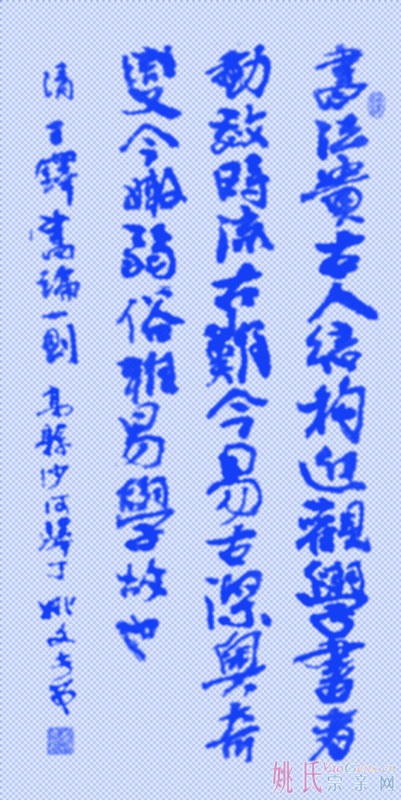 書法貴古人结构近觀學書者
動效時流古難今易古深奥奇
變今嫩弱俗雅易學故也
清王鐸書論一則 高縣沙河驛丁 姚文
姚氏宗亲网